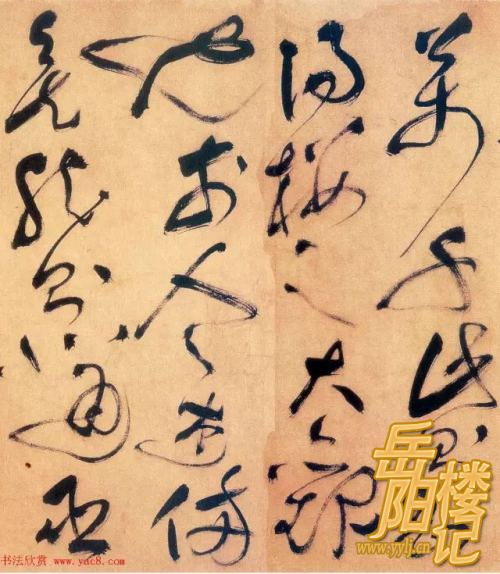 萬千此則岳
陽樓之大觀
也前人之述備
矣然則北通巫
岳阳楼记
www.yylj.cn
书法欣赏 www.yac8.com